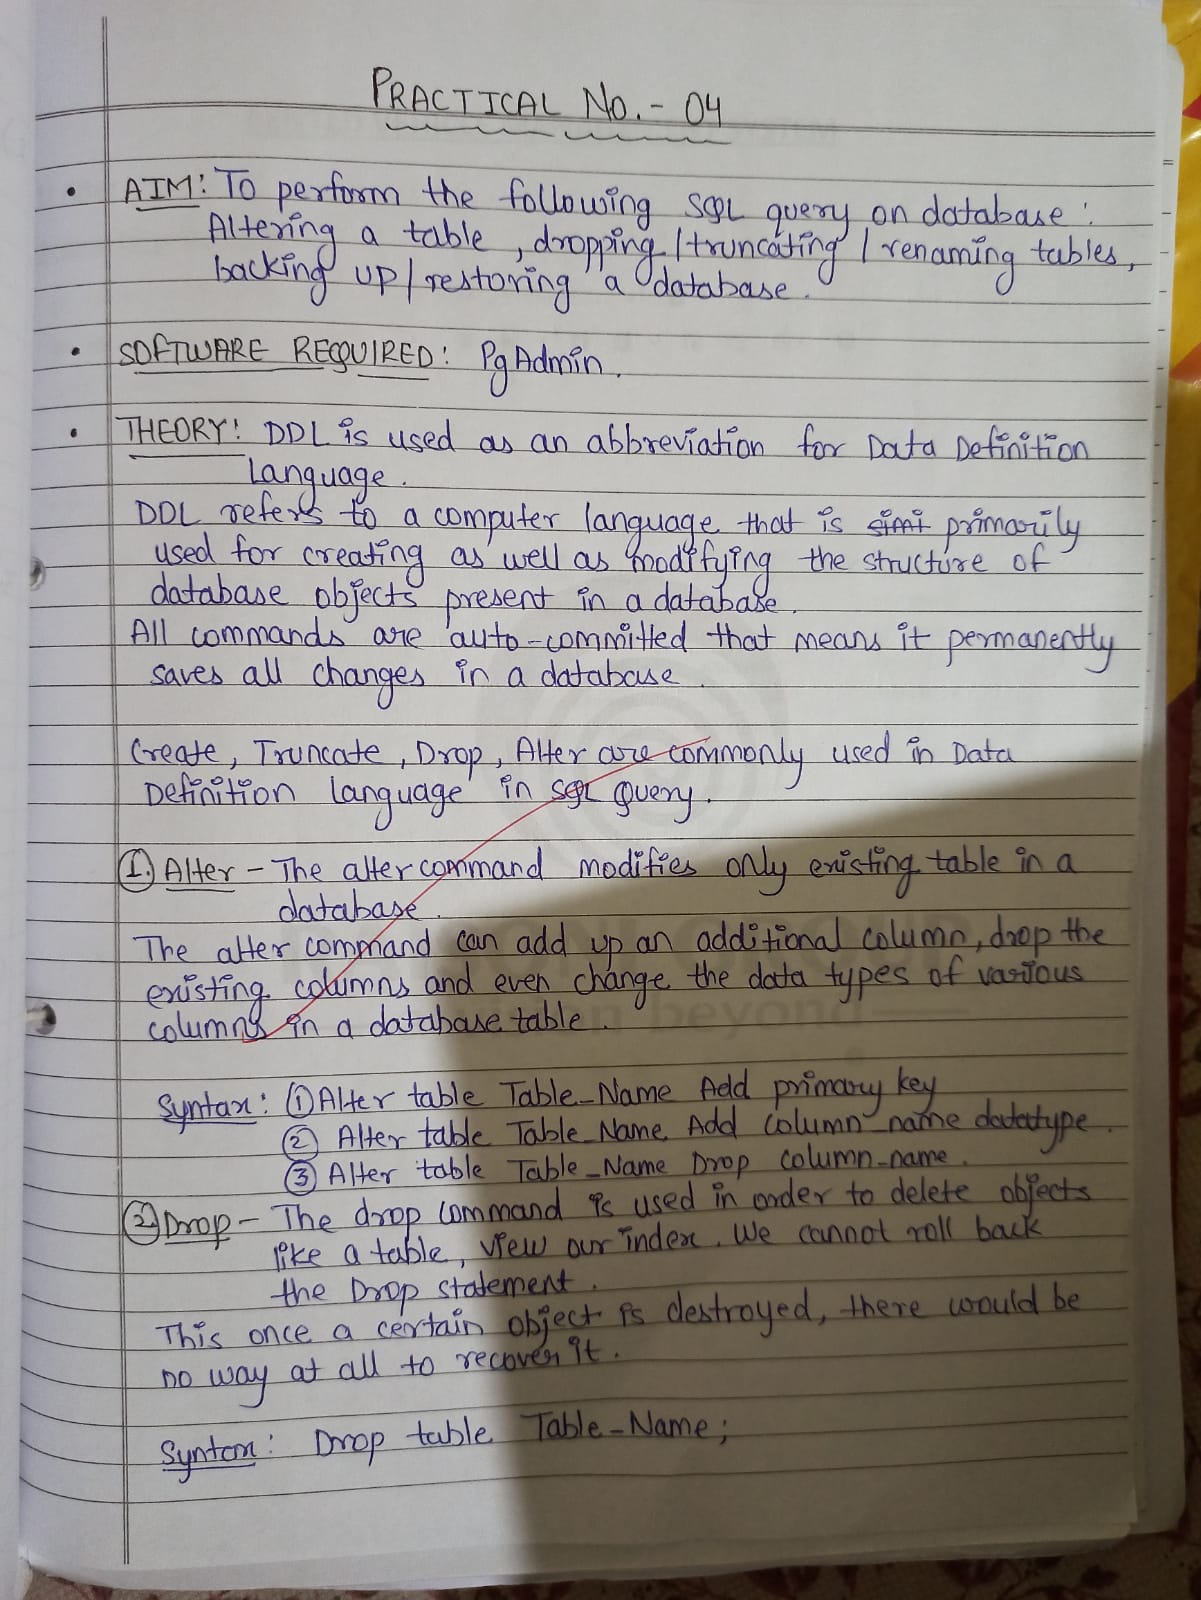 PRACTICAL No. - 04
• AIM: To perform the following SQL query on database:
Altering a table, dropping/truncating/renaming tables,
backing up/restoring a database.
• SOFTWARE REQUIRED: PgAdmin.
• THEORY: DDL is used as an abbreviation for Data Definition
Language.
DDL refers to a computer language that is simi primarily
used for creating as well as modifying the structure of
database objects present in a database.
All commands are auto-committed that means it permanently
saves all changes in a database.
Create, Truncate, Drop, Alter are commonly used in Data
Definition language in SQL Query.
1. Alter - The alter command modifies only existing table in a
database.
The alter command can add up an additional column, drop the
existing columns and even change the data types of various
columns in a database table.
Syntax: ① Alter table Table_Name Add primary key
② Alter table Table_Name Add Column_name datatype.
③ Alter table Table_Name Drop Column_name.
2. Drop - The drop command is used in order to delete objects
like a table, view our index. We cannot roll back
the Drop statement.
This once a certain object is destroyed, there would be
no way at all to recover it.
Syntax: Drop table Table-Name;